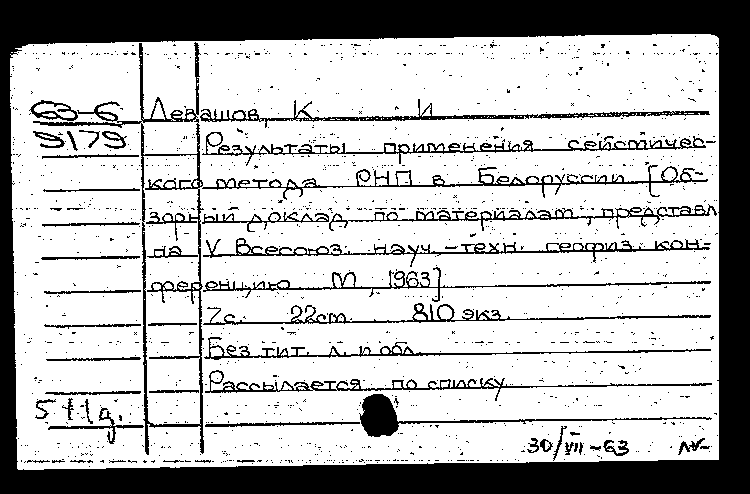 63-6 Левашов, К. И
3179 Результаты применения сейсмичес-
кого метода РНП в Белоруссии [Об-
зорный доклад по материалам, представл
на V Всесоюз. науч.-техн. геофиз. кон-
ференцию М., 1963]
7с. 22см. 810 экз.
Без тит. л. и обл.
Рассылается по списку
30/VII-63